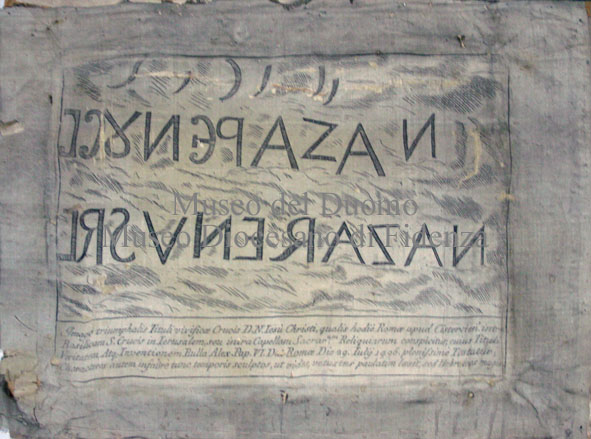 N AZAPENYC
NAZARENVSR
Museo del Duomo
Museo Diocesano di Fidenza
Imago triumphalis Tituli vivificæ Crucis D.N. Iesù Christi, qualis hodiè Romæ apud Cistercien: intrà
Basilicam S. Crucis in Ierusalem, seu intra Capellam Sacrar.um Reliquiarum conspicitur, cuius Tituli
Veritatem Atq Inventionem Bulla Alex. Pap. VI. Romæ Die 29. Iulij 1496. plenissimè Testatur
autem tunc temporis sculptos, ut vetustas paulatim Hebræos